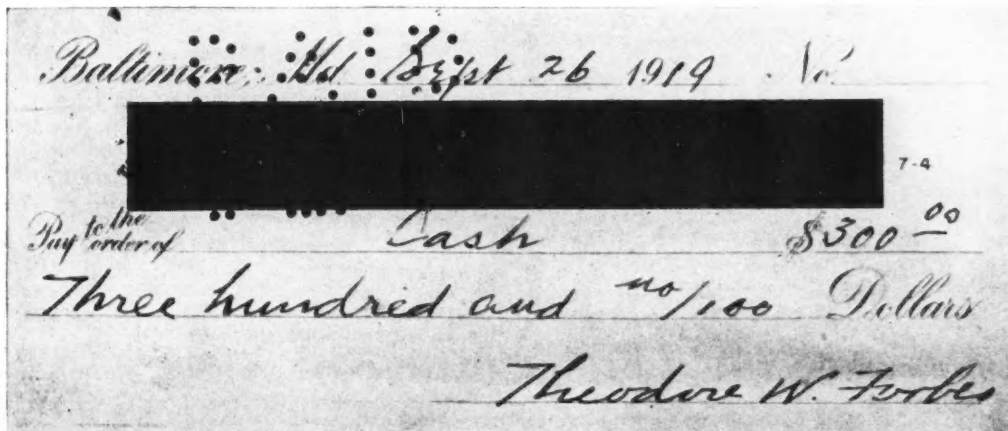 Baltimore, Md. Sept 26 1919 No.
7-4
Pay to the order of Cash $300 00
Three hundred and no/100 Dollars
Theodore W. Forbes